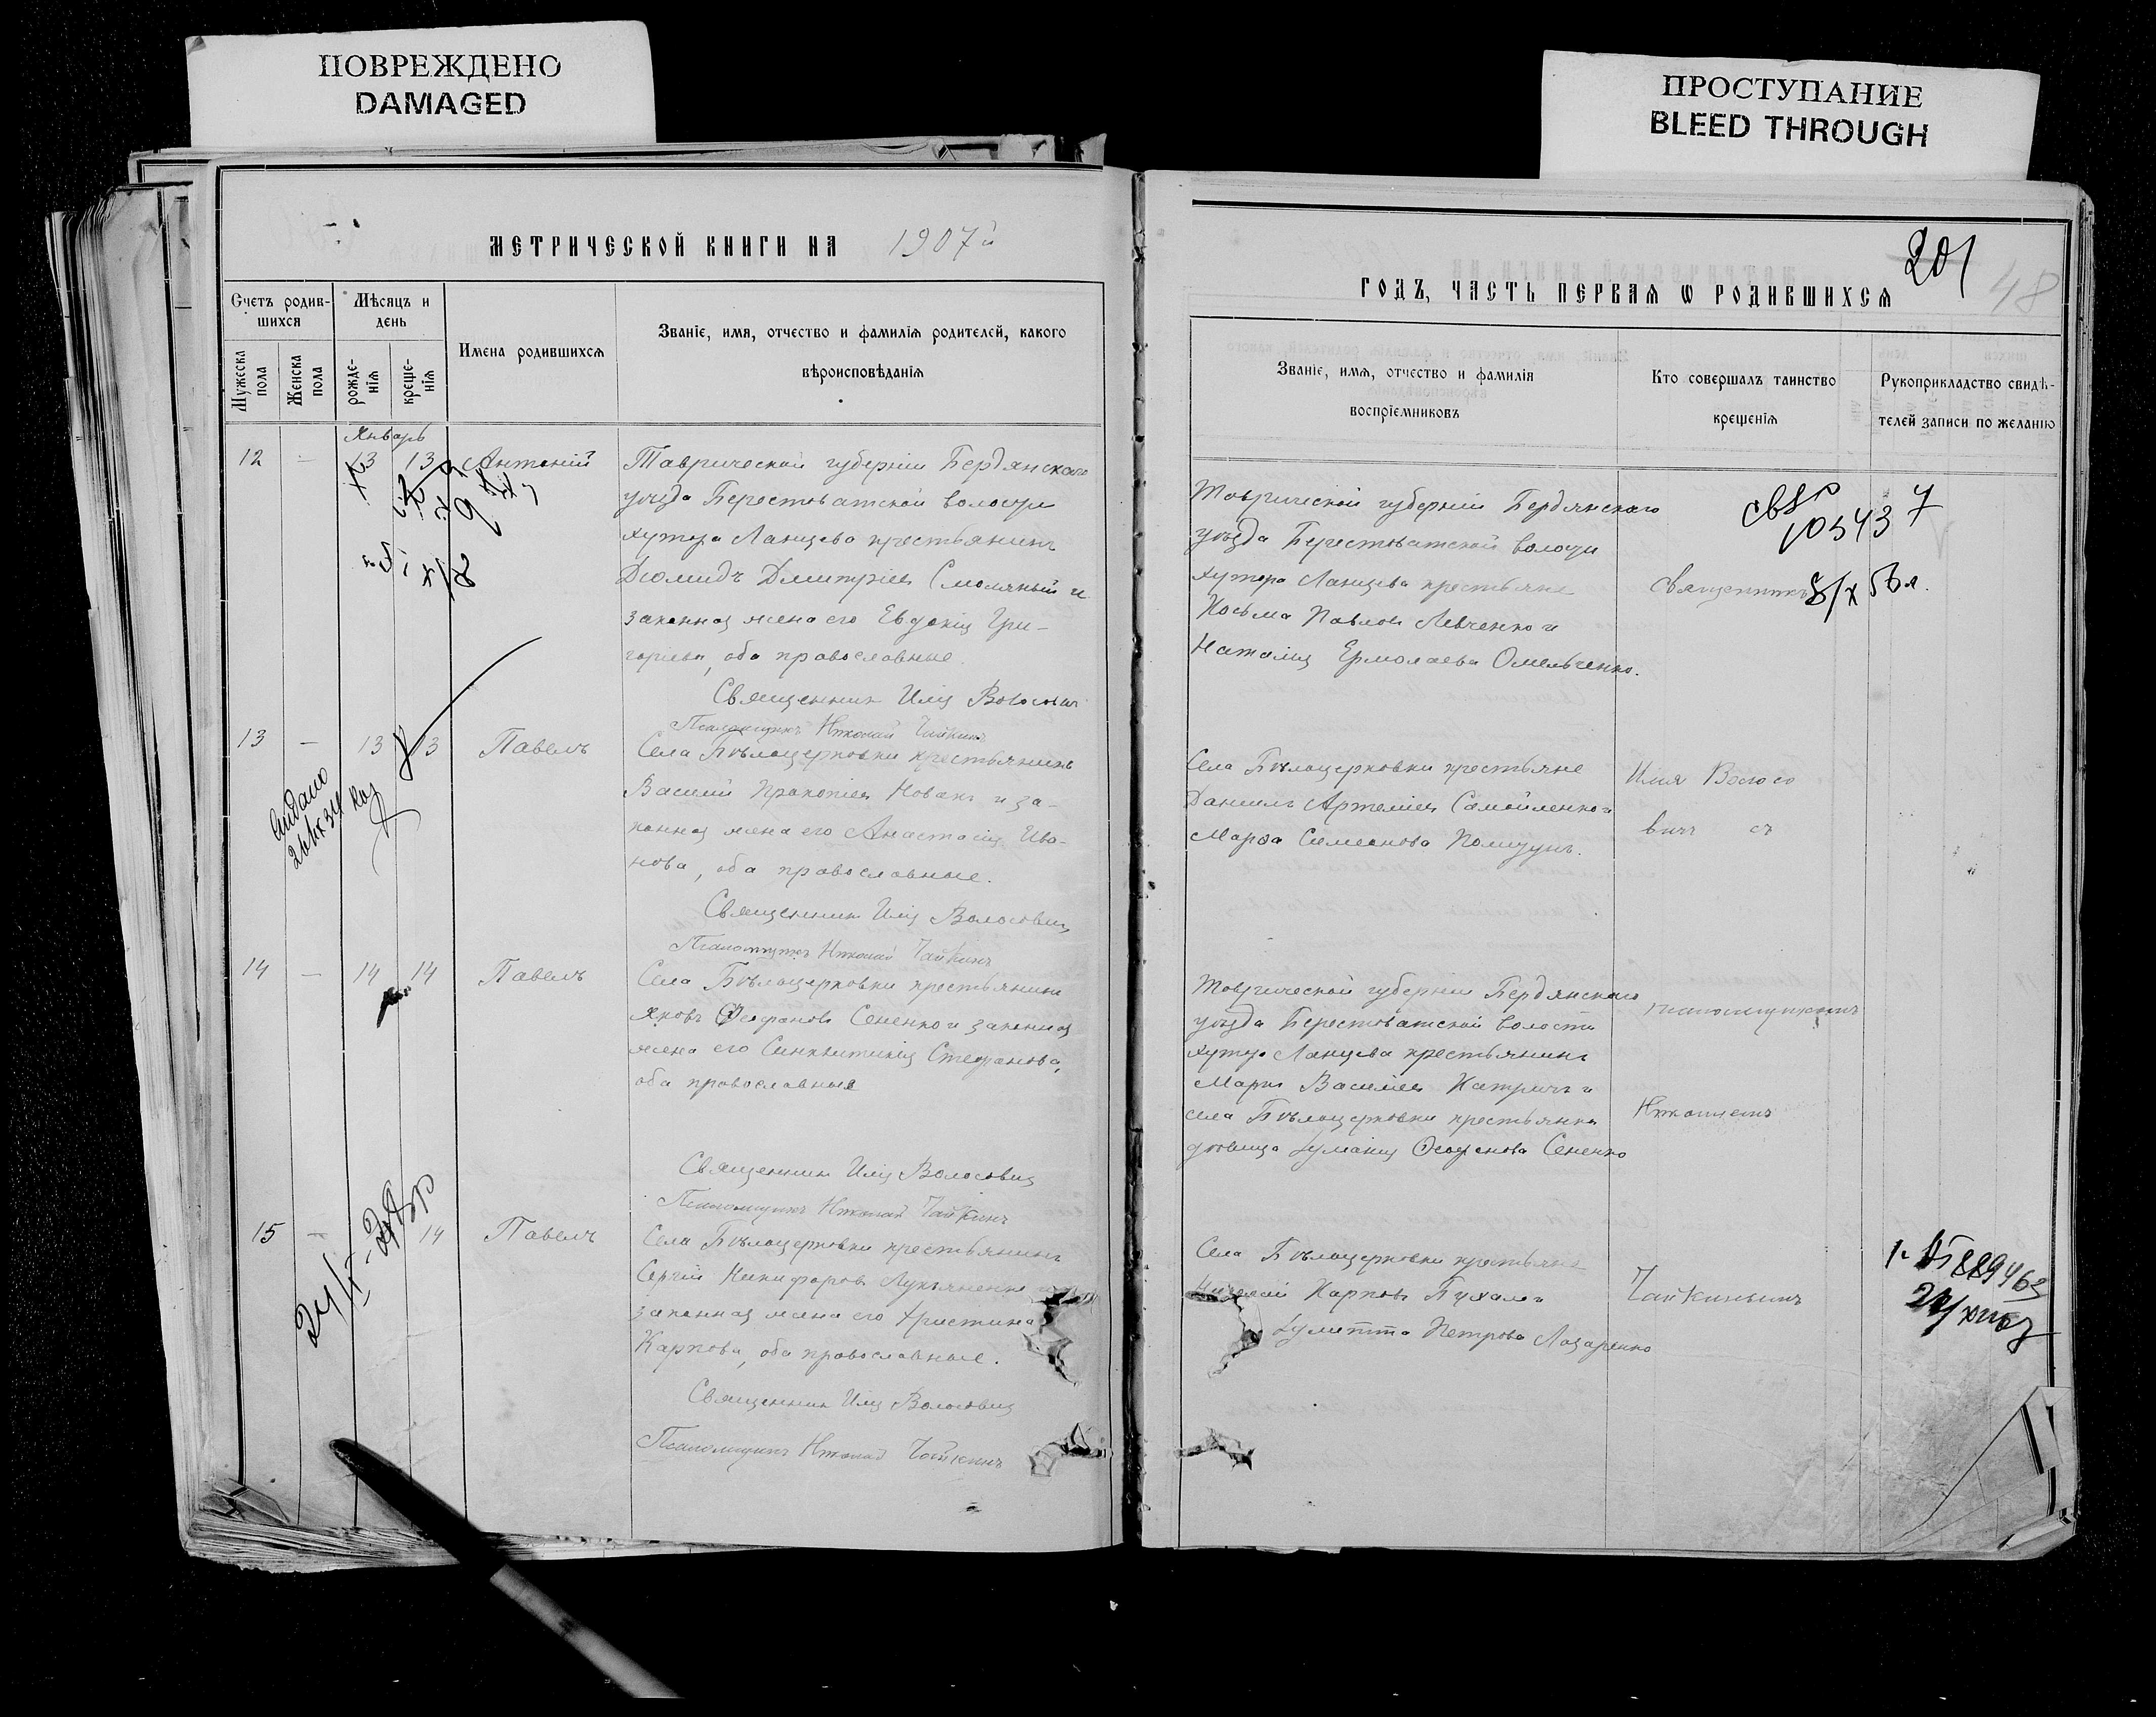 ПОВРЕЖДЕНО
DAMAGED
ПРОСТУПАНИЕ
BLEED THROUGH
МЕТРИЧЕСКОЙ КНИГИ НА 1907й
Счетъ родив-
шихся
Мѣсяцъ и
день
Имена родившихся
Званіе, имя, отчество и фамилія родителей, какого
вѣроисповѣданія
Мужеска
пола
Женска
пола
рожде-
нія
креще-
нія
Январь
12 — 13 13 Антоній
Таврической губерніи Бердянскаго
уѣзда Берестоватской волости
хутора Ланцева крестьянинъ
Діомидъ Дмитріевъ Смоляный и
законная жена его Евдокія Гри-
горіева, оба православные.
Священникъ Илія Волосовичъ
Псаломщикъ Николай Чайкинъ
13 — 13 13 Павелъ
Села Бѣлоцерковки крестьянинъ
Василій Прокопіевъ Новакъ и за-
конная жена его Анастасія Ива-
нова, оба православные.
Священникъ Илія Волосовичъ
Псаломщикъ Николай Чайкинъ
14 — 14 14 Павелъ
Села Бѣлоцерковки крестьянинъ
Яковъ Ѳеофановъ Сененко и законная
жена его Синклитикія Стефанова,
оба православные
Священникъ Илія Волосовичъ
Псаломщикъ Николай Чайкинъ
15 — 14 Павелъ
Села Бѣлоцерковки крестьянинъ
Сергій Никифоровъ Лукьяненко
законная жена его Христина
Карпова, оба православные.
Священникъ Илія Волосовичъ
Псаломщикъ Николай Чайкинъ
201
48
ГОДЪ, ЧАСТЬ ПЕРВАЯ Ѡ РОДИВШИХСЯ
Званіе, имя, отчество и фамилія
воспріемниковъ
Кто совершалъ таинство
крещенія
Рукоприкладство свидѣ-
телей записи по желанію
Таврической губерніи Бердянскаго
уѣзда Берестоватской волости
хутора Ланцева крестьяне
Косьма Павловъ Левченко и
Наталія Ермолаева Омельченко.
Села Бѣлоцерковки крестьяне
Даніилъ Артеміевъ Самойленко и
Марѳа Симеонова
Таврической губерніи Бердянскаго
уѣзда Берестоватской волости
хутора Ланцева крестьянинъ
Маркъ Василіевъ и
села Бѣлоцерковки крестьянка
дѣвица Ѳеофанова Сененко
Села Бѣлоцерковки крестьяне
Карповъ
Петрова Лазаренко
Священникъ
Илія Волосо
вичъ съ
псаломщикомъ
Николаемъ
Чайкинымъ